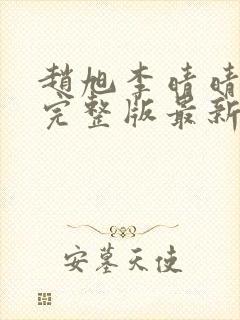 趙旭李晴晴
完整版最新
安墓天使